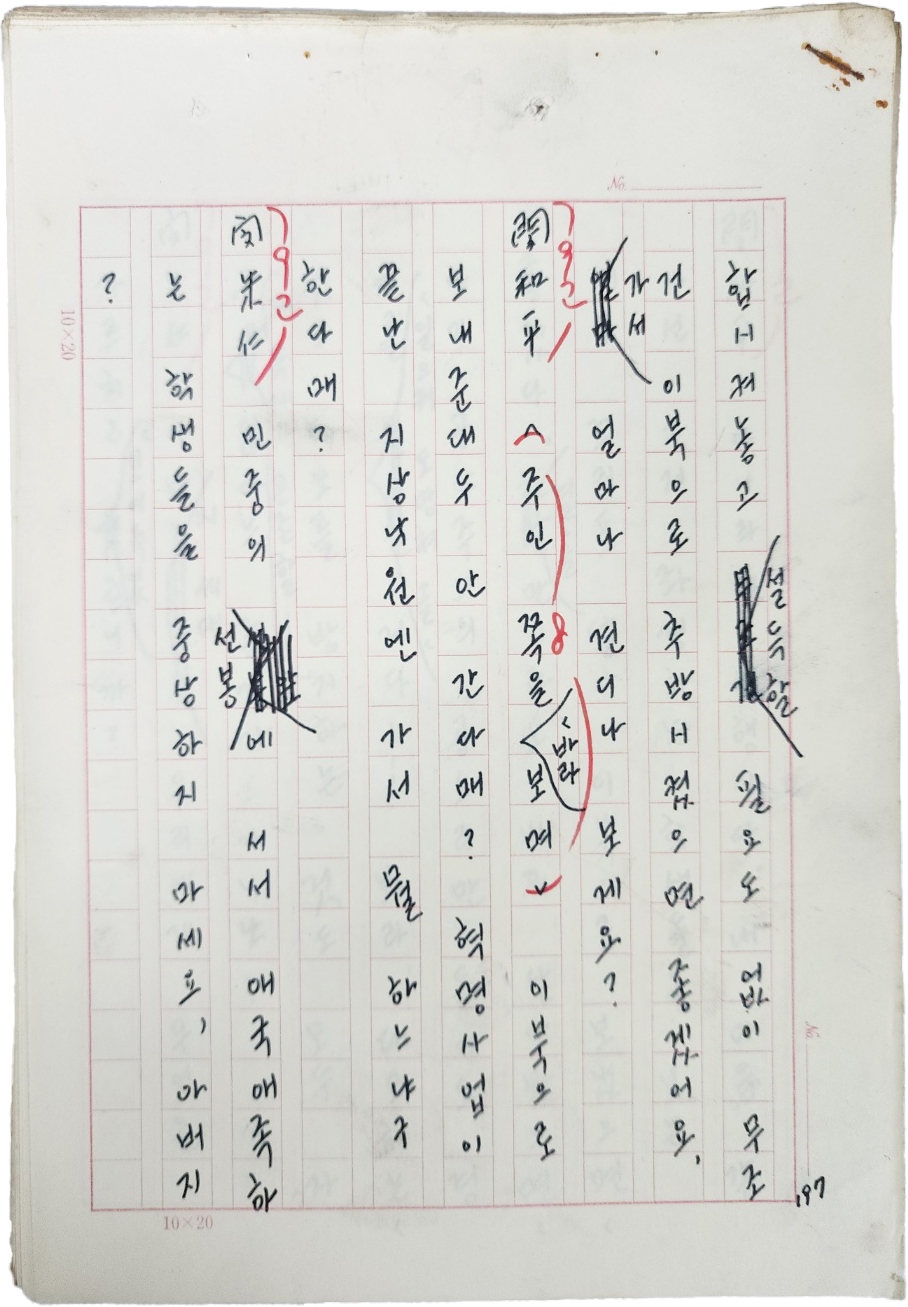 No.
합시켜놓고 설득할 필요도 없이 무조
건 이북으로 추방시켰으면 좋겠어요,
가서 얼마나 견디나 보게요?
和平 (주인 쪽을 바라보며) 이북으로
보내준대두 안 간다매? 혁명사업이
끝난 지상낙원엔 가서 뭘 하느냐구
한다매?
朱仁 민중의 선봉에 서서 애국애족하
는 학생들을 중상하지 마세요, 아버지
?
9고
8
9고
197
No.
10×20
10×20